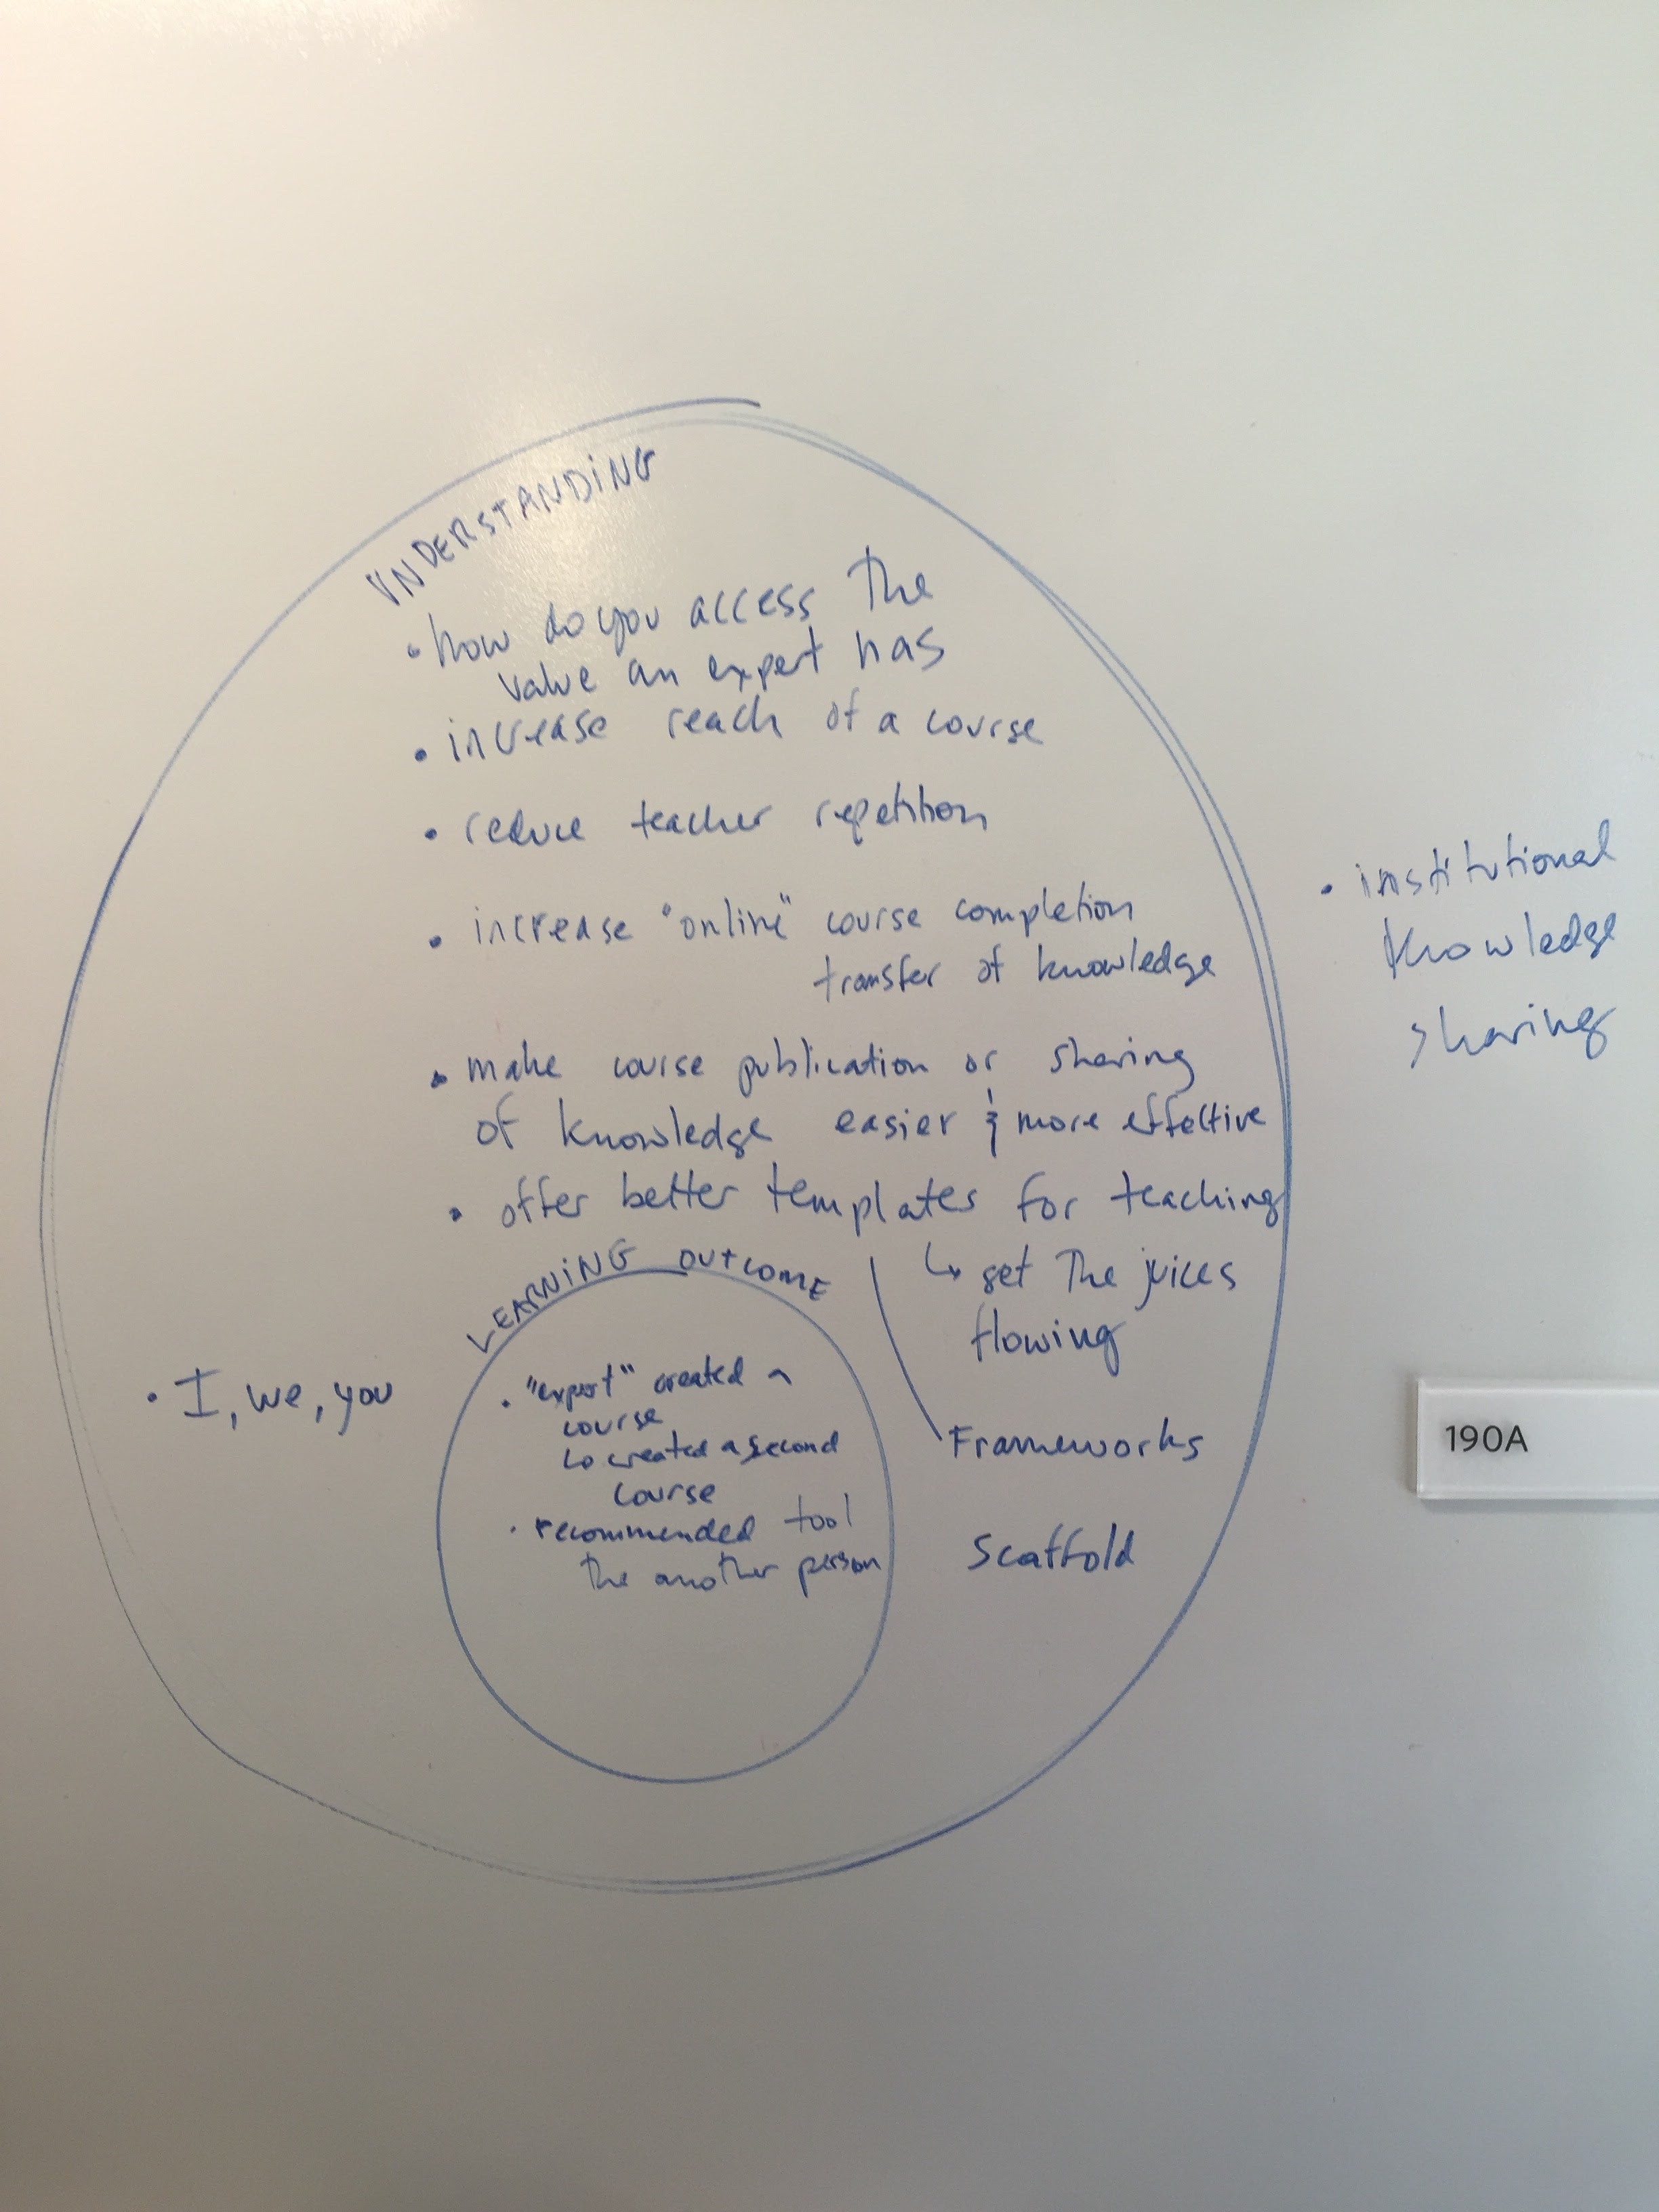 UNDERSTANDING
• how do you access the
value an expert has
• increase reach of a course
• reduce teacher repetition
• increase "online" course completion
transfer of knowledge
• make course publication or sharing
of knowledge easier & more effective
• offer better templates for teaching
↳ get the juices
flowing
Frameworks
Scaffold
LEARNING OUTCOME
• "expert" created a
course
↳ created a second
course
• recommended tool
the another person
• I, we, you
• institutional
knowledge
sharing
190A